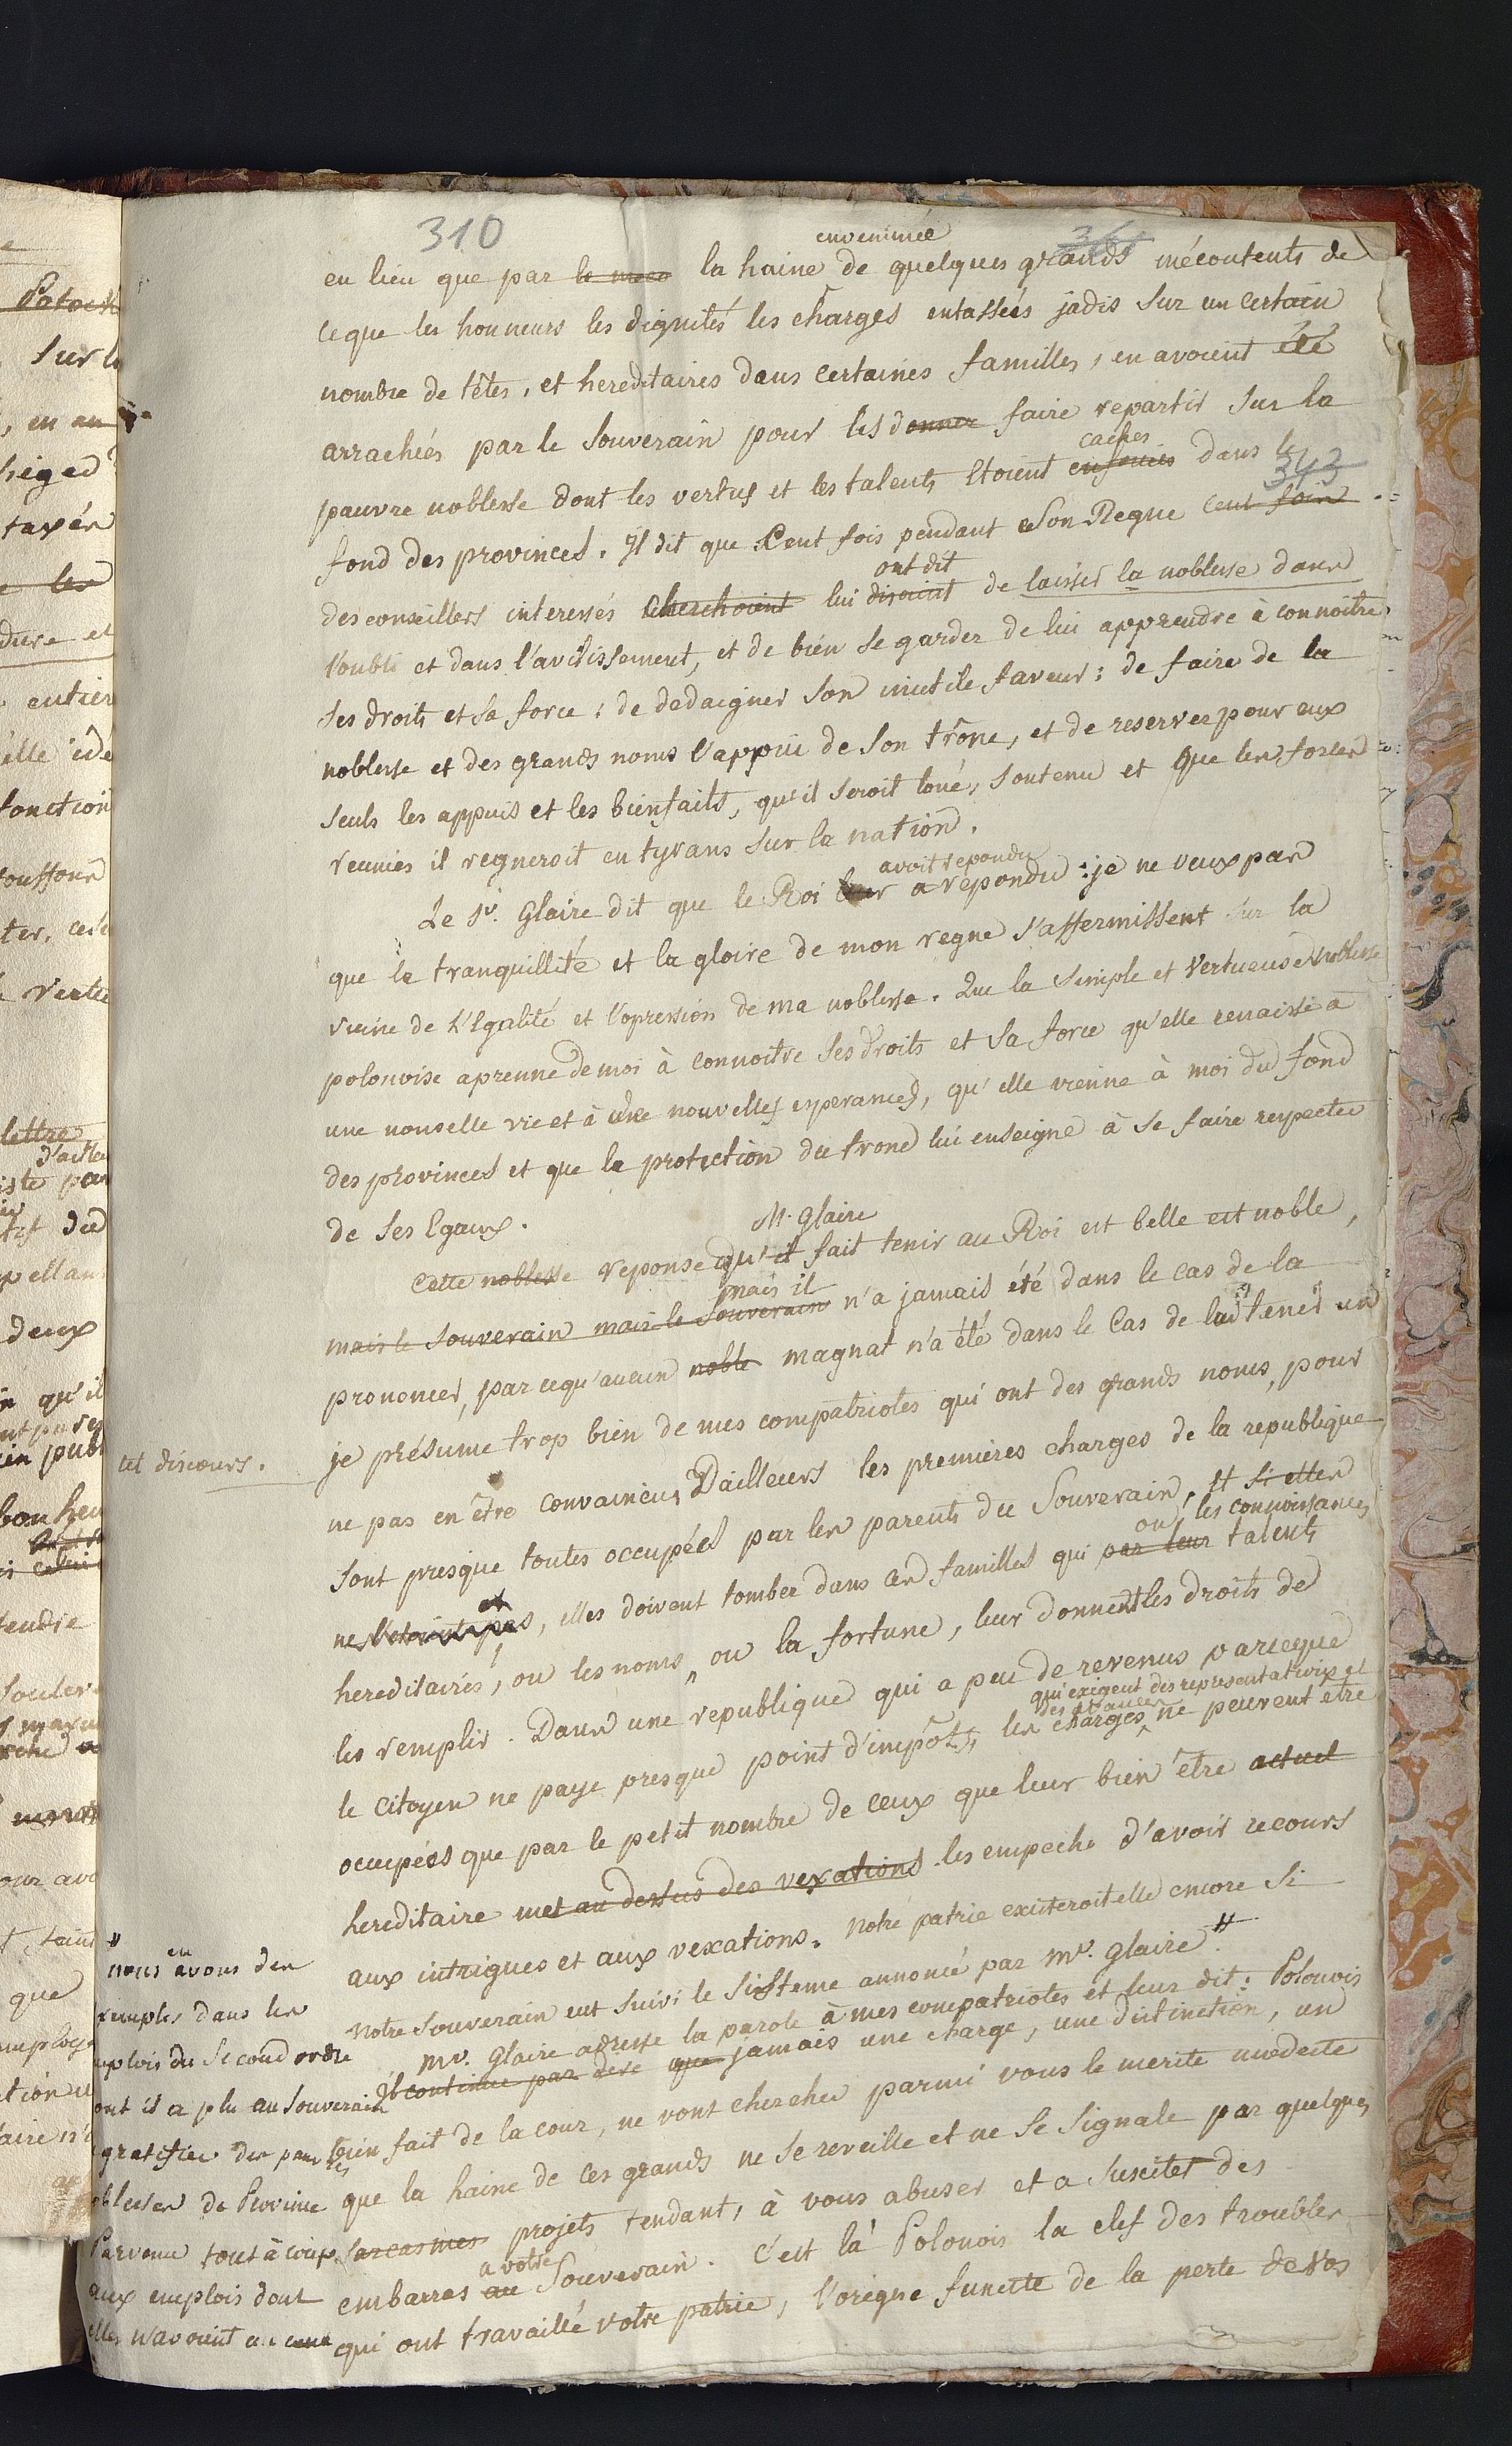 310
361
envenimée
en lieu que par le meco la haine de quelques grands mécontents de
ce que les honneurs les dignités les charges entassées jadis sur un certain
nombre de têtes, et hereditaires dans certaines familles, en avoient été
arrachées par le Souverain pour les donner faire repartir sur la
cachés
pauvre noblesse dont les vertus et les talents etoient enfouies dans le
343
fond des provinces. Il dit que Cent fois pendant Son Regne cent fois
ont dit
des conseillers interessés cherchoient lui disoient de laisser la noblesse dans
l'oubli et dans l'avilissement, et de bien se garder de lui apprendre à connoitre
ses droits et sa force; de dedaigner son inutile faveur: de faire de la
noblesse et des grands noms l'appui de son trône, et de reserver pour eux
seuls les appuis et les bienfaits, qu'il seroit loué, soutenu et que les forces
reunies il regneroit en tyrans sur la nation.
avoit repondu
Le Sr. Glaire dit que le Roi leur a repondu: je ne veux pas
que la tranquillité et la gloire de mon regne s'affermissent sur la
ruine de l'Egalité et l'opression de ma noblesse. Que la simple et vertueuse noblesse
polonoise aprenne de moi à connoitre ses droits et sa force qu'elle renaisse à
une nouvelle vie et à une nouvelles esperances, qu'elle vienne à moi du fond
des provinces et que la protection du trone lui enseigne à se faire respecter
de ses Egaux.
M. Glaire
Cette noblesse reponse qu'il fait tenir au Roi est belle est noble,
mais il
mais le Souverain mais le Souverain n'a jamais été dans le cas de la
prononcer, parcequ'aucun noble magnat n'a été dans le Cas de lui tener un
tel discours.
je présume trop bien de mes compatriotes qui ont des grands noms, pour
ne pas en être convaincu, Dailleurs les premières charges de la republique
sont presque toutes occupées par les parents du Souverain, et si elles
ou les connoissances
ne l'etoient pas, elles doivent tomber dans ces familles qui par leur talents
hereditaires, ou les noms, ou la fortune, leur donnent les droits de
les remplir. Dans une republique qui a peu de revenus parceque
qui exigent des representations et
le citoyen ne paye presque point d'impôts, les charges ne peuvent être
occupées que par le petit nombre de ceux que leur bien être actuel
hereditaire met au dessus des vexations les empeche d'avoir recours
aux intrigues et aux vexations. Notre patrie existeroit elle encore si
notre Souverain eut suivi le sisteme annoncé par Mr. Glaire. #
Mr. Glaire adresse la parole à mes compatriotes et leur dit: Polonois
Il continue par dire que jamais une charge, une distinction, un
bien fait de la cour, ne vont chercher parmi vous le merite modeste
que la haine de ces grands ne se reveille et ne se signale par quelques
sarcasmes projets tendant, à vous abuser et a susciter des
a votre
embarras au Souverain. C'est là Polonois la clef des troubles
qui ont travaillé votre patrie, l'origne funeste de la perte de vos
#
en
nous avons des
exemples dans les
emplois du second ordre
dont il a plu au Souverain
gratifier des pauvres
noblesses de Province
Parvenu tout à coup
aux emplois dont
elles n'avoient aucune